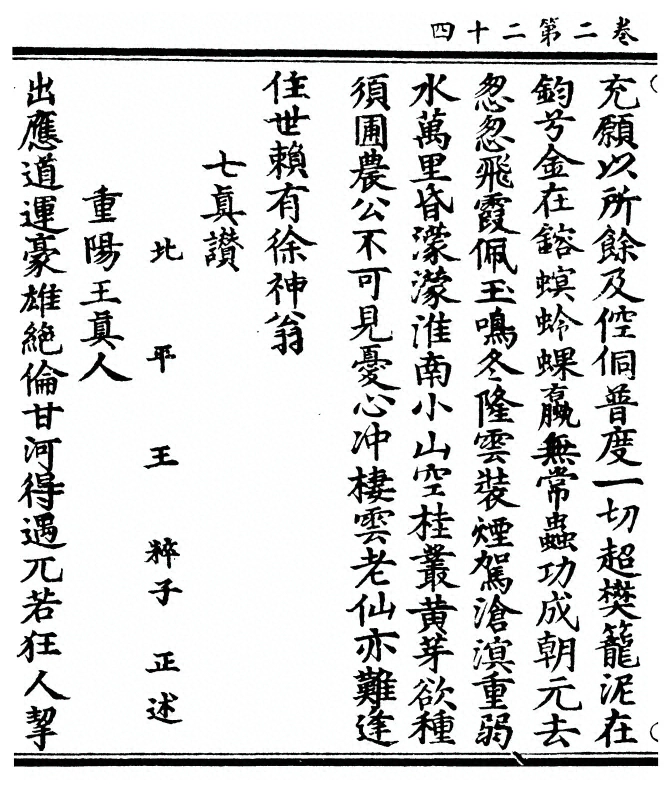 卷二第二十四
充願以所餘及倥侗普度一切超樊籠泥在
鈞兮金在鎔螟蛉蜾蠃無常蟲功成朝元去
怱怱飛霞佩玉鳴冬隆雲裝煙駕滄溟重弱
水萬里昏濛濛淮南小山空桂叢黄芽欲種
須圃農公不可見憂心冲棲雲老仙亦難逢
住世賴有徐神翁
七眞讃
北平王粹子正述
重陽王眞人
出應道運豪雄絕倫甘河得遇兀若狂人挈